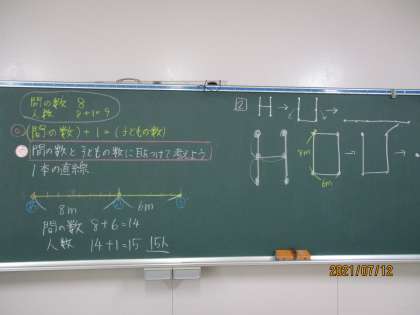 間の数 8
人数 8+1=9
(間の数)+1=(子どもの数)
間の数と子どもの数に目をつけて考えよう
1本の直線
8m 6m
間の数 8+6=14
人数 14+1=15 15人
2
8m
6m
2021/07/12